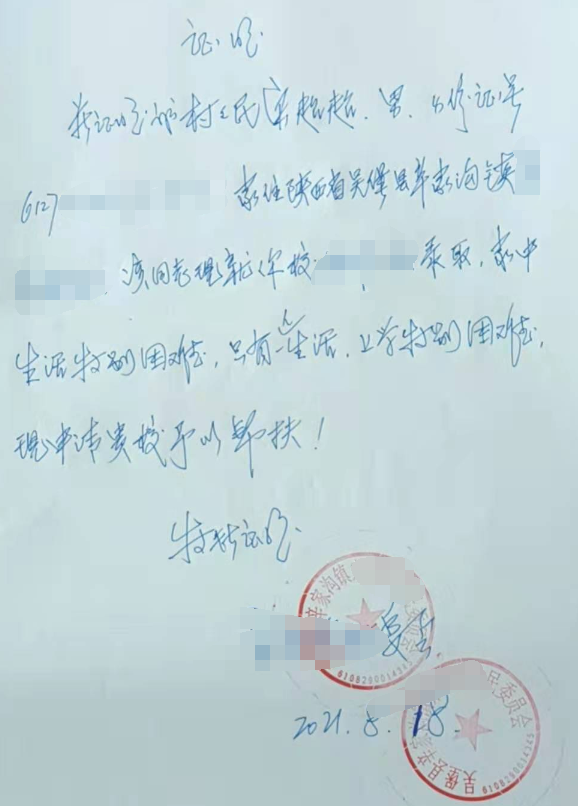 证明
兹证明我村村民宋超超，男，身份证号
6127 家住陕西省吴堡县辛家沟镇
该同志现就你校 录取，家中
生活特别困难，只有一人生活，上学特别困难，
现申请贵校予以帮扶！
特此证明
辛家沟镇
6108290014345
2021.8.18.
吴堡县辛家沟镇 民委员会
6108290014345